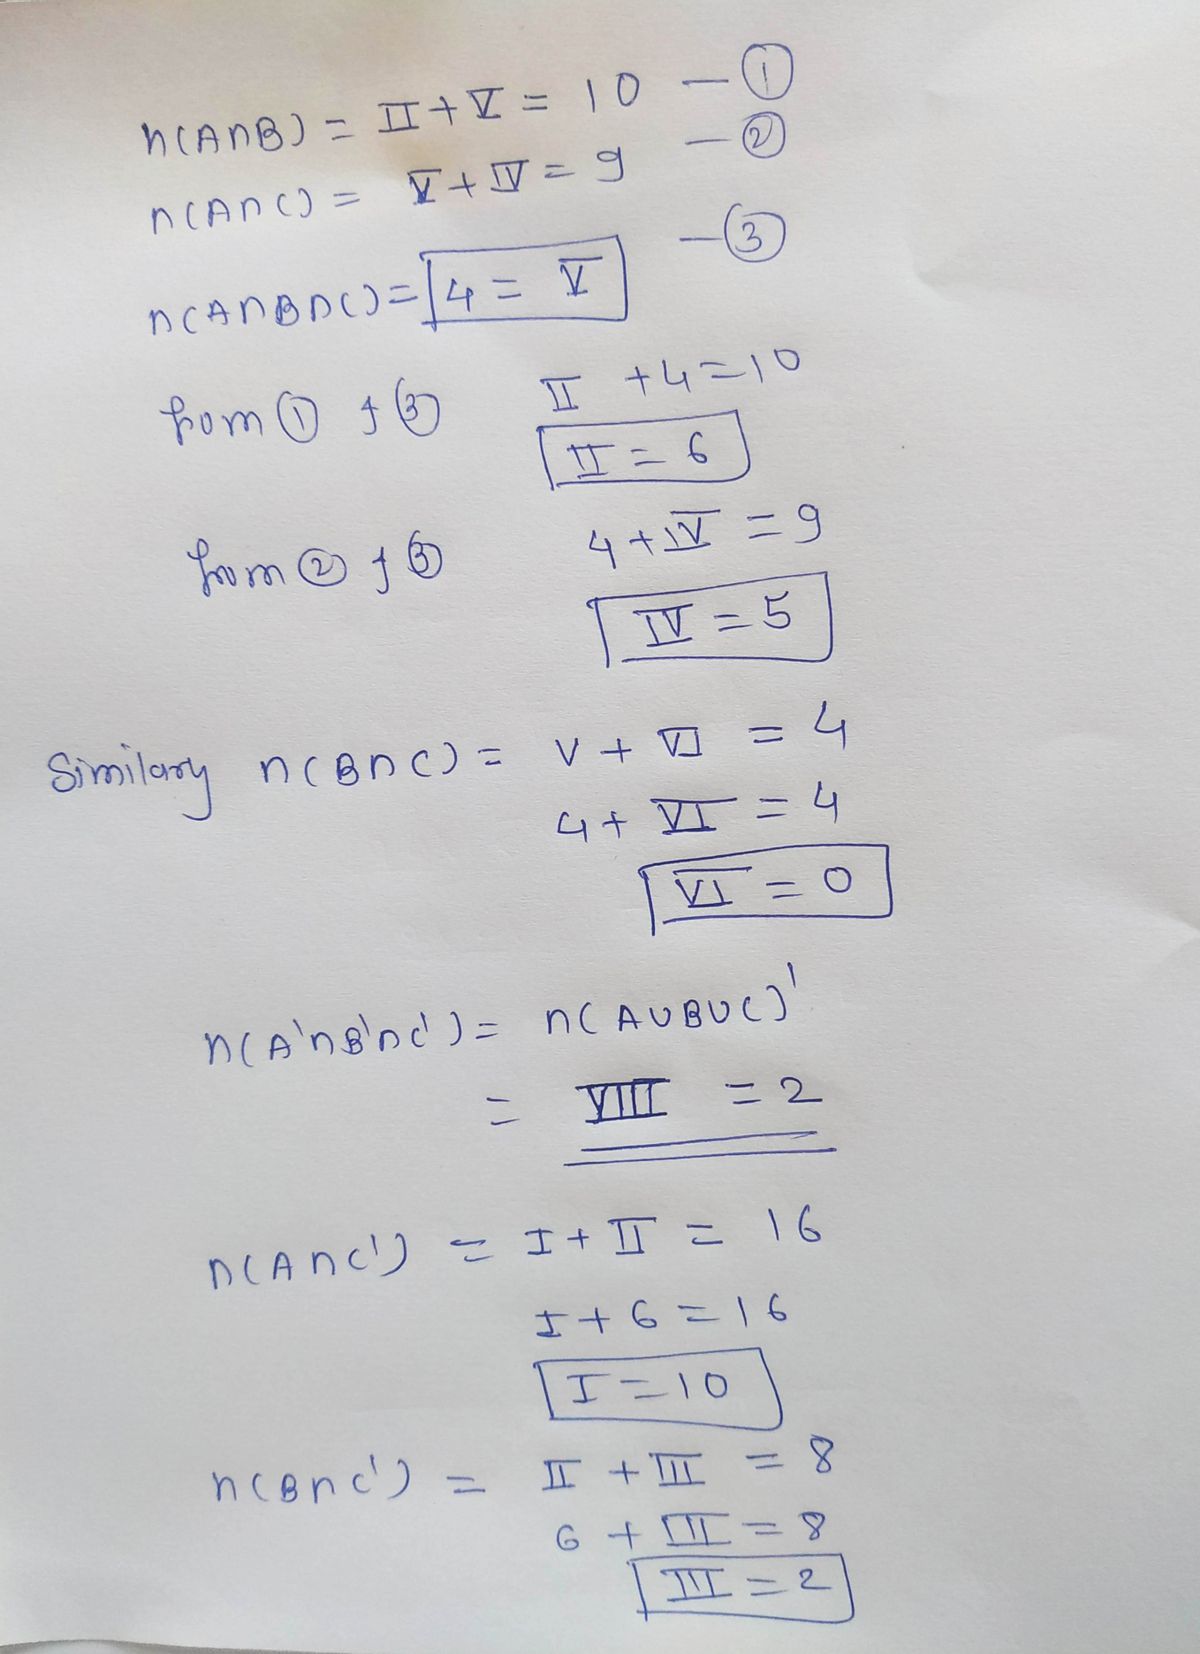 n(A∩B) = II + V = 10 — ①
n(A∩C) = V + IV = 9 — ②
n(A∩B∩C) = 4 = V — ③
from ① & ③ II + 4 = 10
II = 6
from ② & ③ 4 + IV = 9
IV = 5
Similary n(B∩C) = V + VI = 4
4 + VI = 4
VI = 0
n(A'∩B'∩C') = n(A∪B∪C)'
= VIII = 2
n(A∩C') = I + II = 16
I + 6 = 16
I = 10
n(B∩C') = II + III = 8
6 + III = 8
III = 2